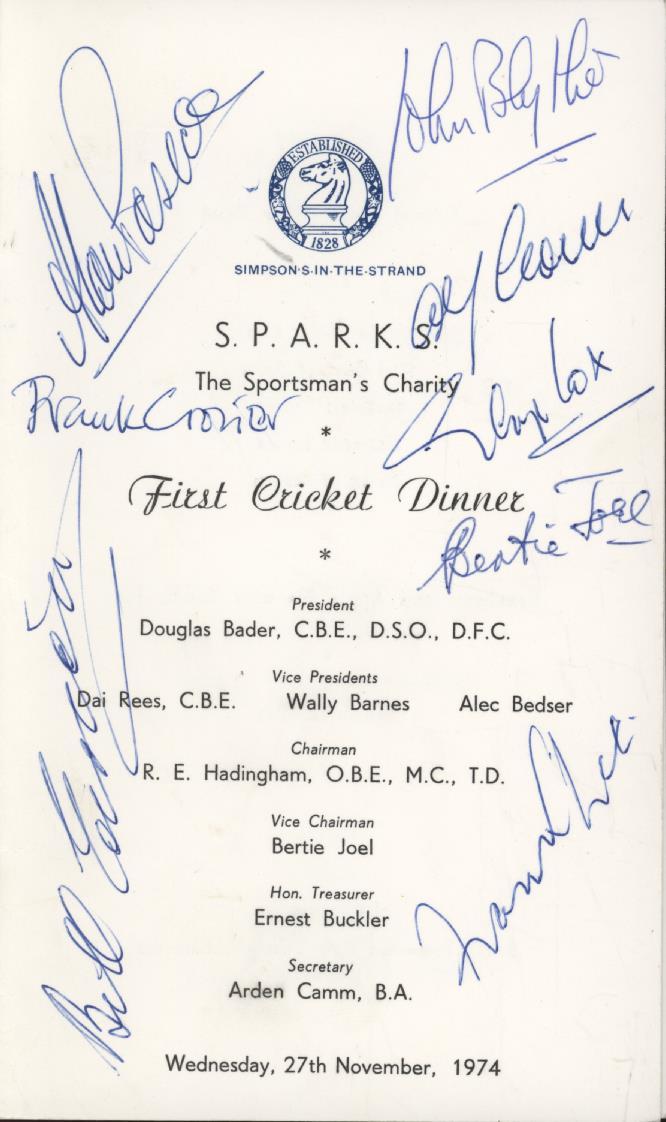 John Blythe
ESTABLISHED
1828
SIMPSON·S·IN·THE·STRAND
S. P. A. R. K. S.
The Sportsman's Charity
Frank Crozier
*
First Cricket Dinner
Bertie Joel
*
President
Douglas Bader, C.B.E., D.S.O., D.F.C.
Vice Presidents
Dai Rees, C.B.E. Wally Barnes Alec Bedser
Chairman
R. E. Hadingham, O.B.E., M.C., T.D.
Vice Chairman
Bertie Joel
Hon. Treasurer
Ernest Buckler
Secretary
Arden Camm, B.A.
Bill
Wednesday, 27th November, 1974